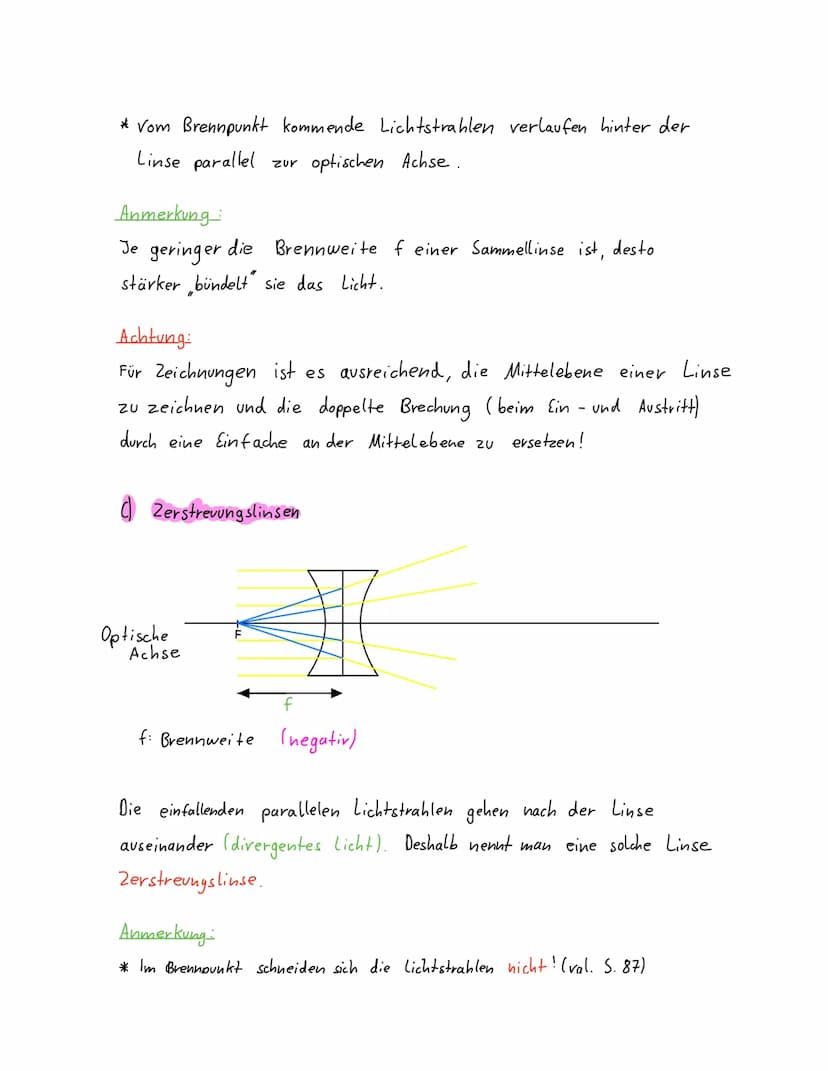 * Vom Brennpunkt kommende Lichtstrahlen verlaufen hinter der
Linse parallel zur optischen Achse.
Anmerkung:
Je geringer die Brennweite f einer Sammellinse ist, desto
stärker „bündelt" sie das Licht.
Achtung:
Für Zeichnungen ist es ausreichend, die Mittelebene einer Linse
zu zeichnen und die doppelte Brechung (beim Ein- und Austritt)
durch eine Einfache an der Mittelebene zu ersetzen!
c) Zerstreuungslinsen
Optische
Achse
F
f
f: Brennweite (negativ)
Die einfallenden parallelen Lichtstrahlen gehen nach der Linse
auseinander (divergentes Licht). Deshalb nennt man eine solche Linse
Zerstreungslinse.
Anmerkung:
* Im Brennpunkt schneiden sich die Lichtstrahlen nicht! (vgl. S. 87)